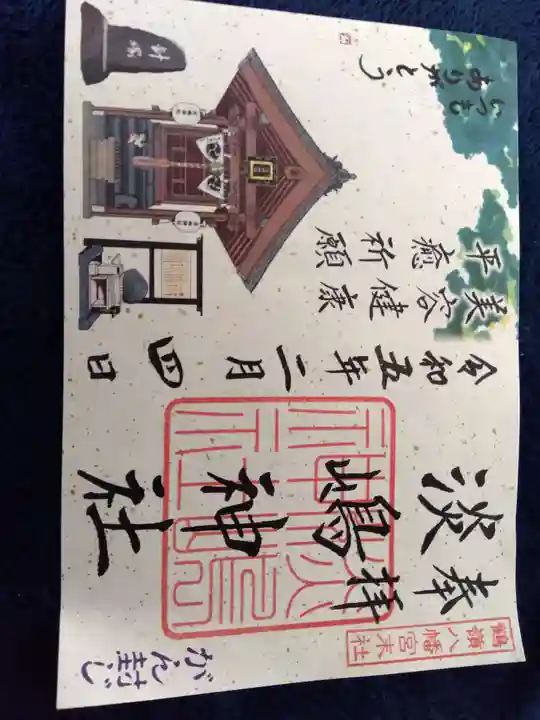 鶴嶺八幡宮末社
がん封じ
奉拝
淡嶋神社
淡嶋神社
令和五年二月四日
美容健康
平癒祈願
いつも
ありがとう
針塚